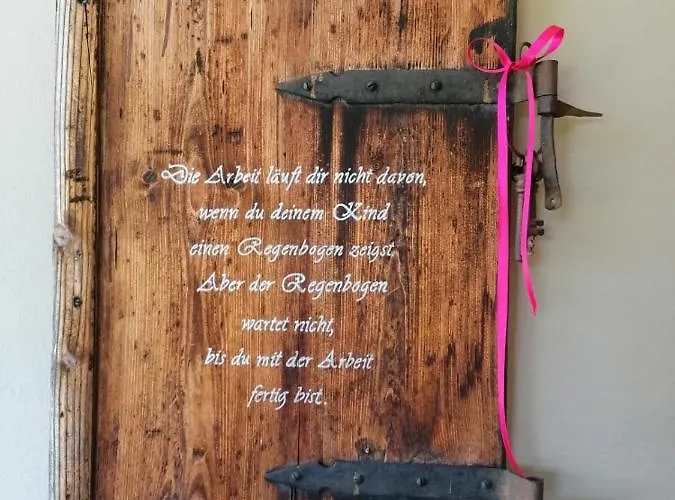 Die Arbeit läuft dir nicht davon,
wenn du deinem Kind
einen Regenbogen zeigst
Aber der Regenbogen
wartet nicht,
bis du mit der Arbeit
fertig bist.